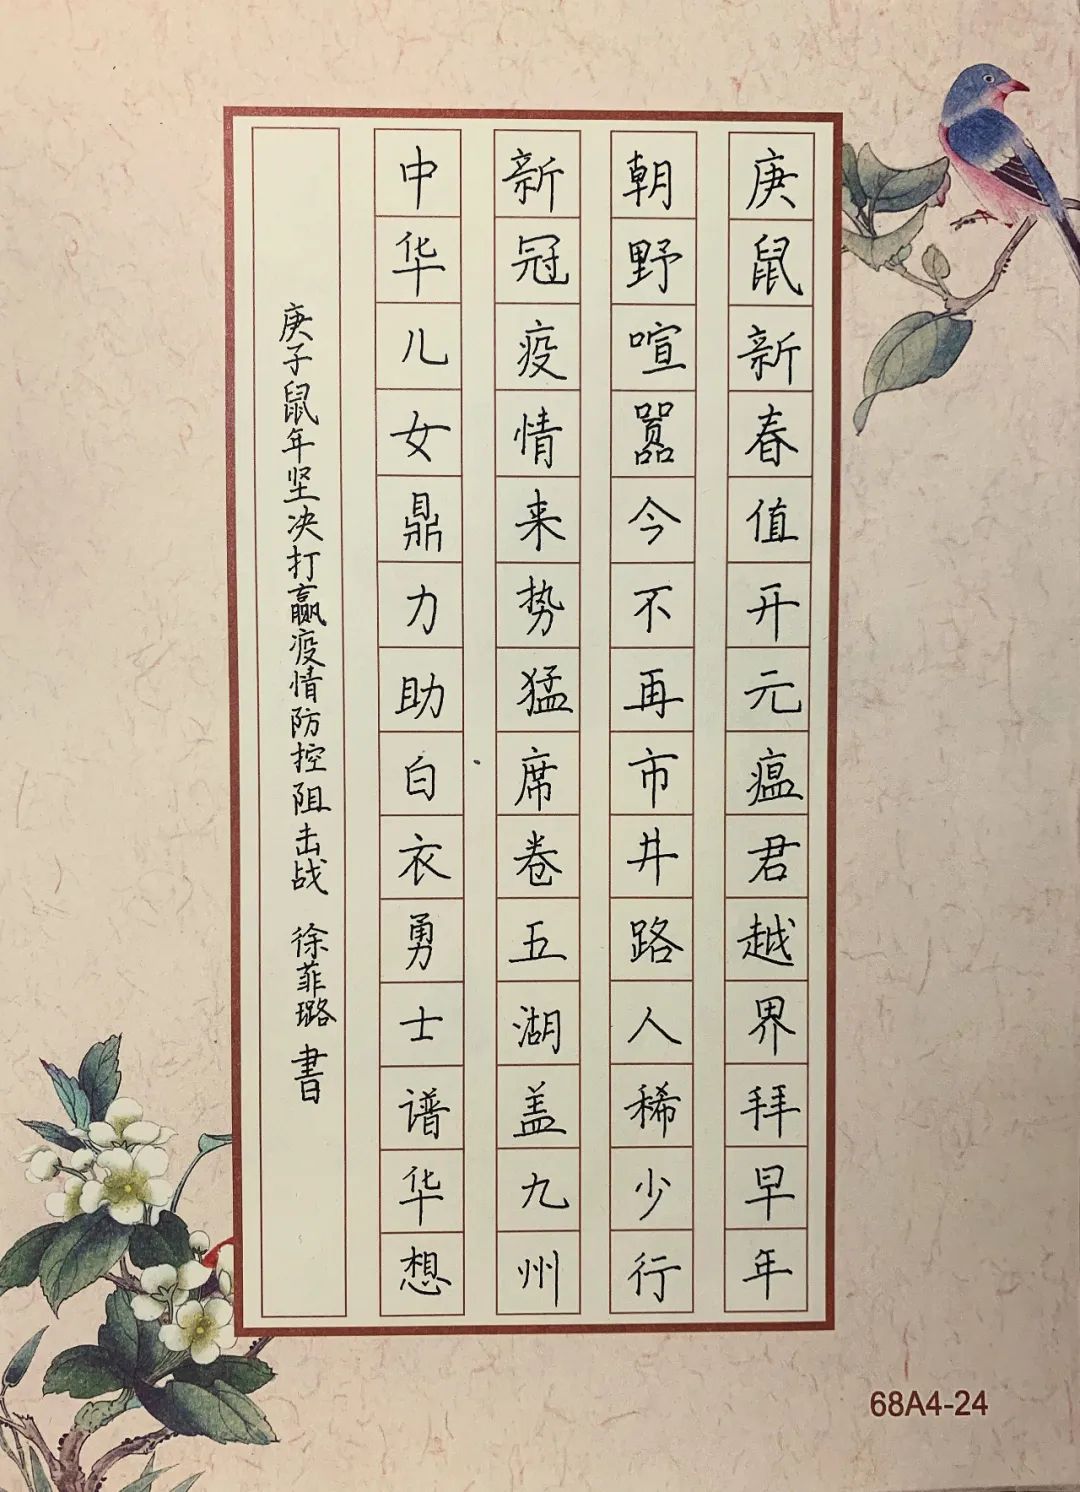 庚鼠新春值开元瘟君越界拜早年
朝野喧嚣今不再市井路人稀少行
新冠疫情来势猛席卷五湖盖九州
中华儿女鼎力助白衣勇士谱华想
庚子鼠年坚决打赢疫情防控阻击战 徐菲璐 書
68A4-24